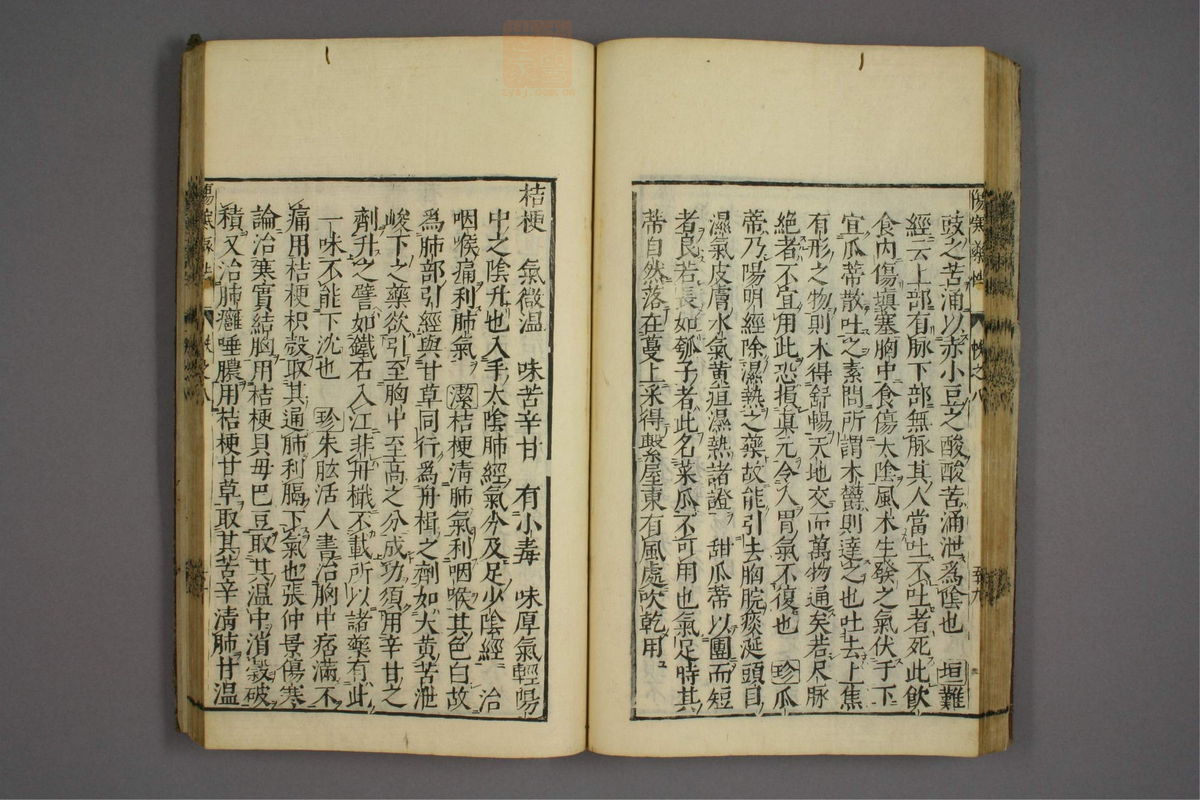 豉之苦涌以赤小豆之酸酸苦涌泄爲陰也　垣難
經云上部有脉下部無脉其人當吐不吐者死此飲
食內傷塡塞胸中食傷太陰風木生發之氣伏于下
宜瓜蒂散吐之素問所謂木鬱則達之也吐去上焦
有形之物則木得舒暢天地交而萬物通矣若尺脉
絶者不宜用此恐損眞元令人胃氣不復也　珍瓜
蒂乃陽明經除濕熱之藥故能引去胸脘痰涎頭目
濕氣皮膚水氣黃疸濕熱諸證　甜瓜蒂以團而短
者良若長如瓠子者此名菜瓜不可用也氣足時其
蒂自然落在蔓上采得繫屋東有風處吹乾用
桔梗　氣微温　味苦辛甘　有小毒　味厚氣輕陽
中之陰升也入手太陰肺經氣分及足少陰經　治
咽喉痛利肺氣　潔桔梗清肺氣利咽喉其色白故
爲肺部引經與甘草同行爲舟楫之劑如大黃苦泄
峻下之藥欲引至胸中至高之分成功須用辛甘之
劑升之譬如鐵石入江非舟檝不載所以諸藥有此
一味不能下沈也　珍朱肱活人書治胸中痞滿不
痛用桔梗枳殼取其通肺利膈下氣也張仲景傷寒
論治寒實結胸用桔梗貝母巴豆取其温中消穀破
積又治肺癰唾膿用桔梗甘草取其苦辛清肺甘温